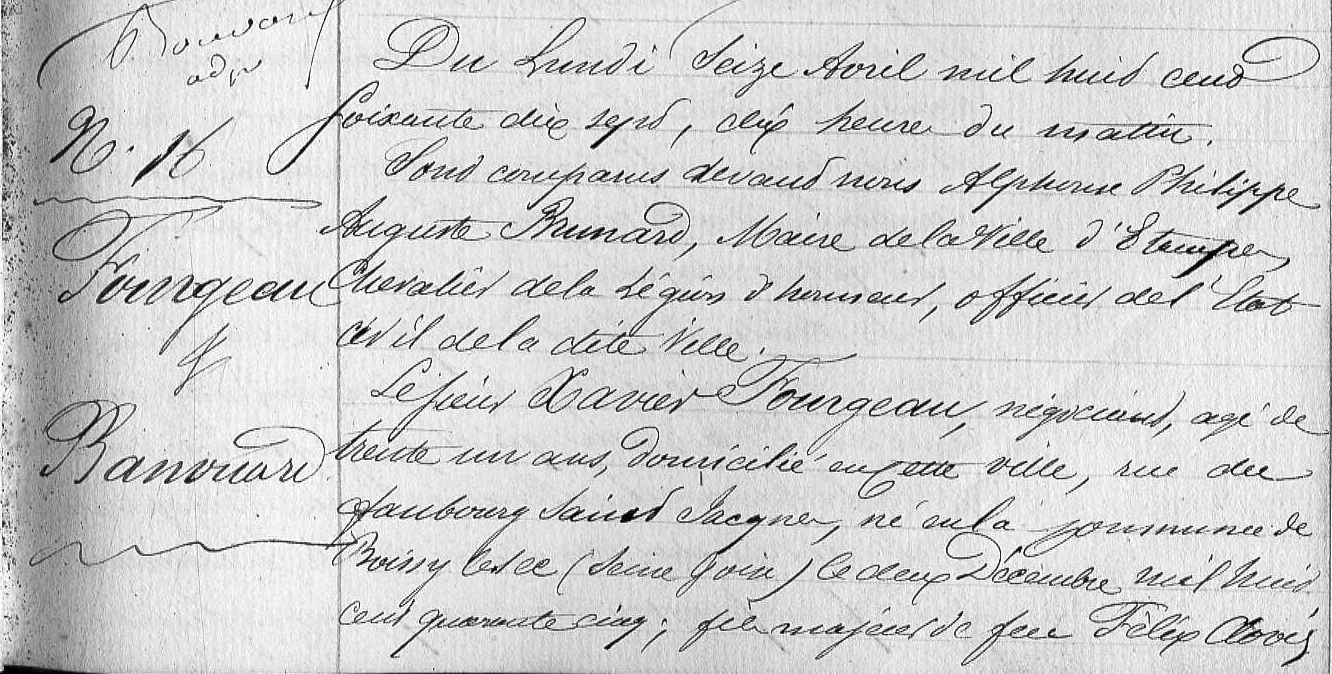 Bouvard
adj
N. 16
Fourgeau
&
Banouard
Du Lundi Seize Avril mil huit cent
soixante dix sept, dix heures du matin.
Sont comparus devant nous Alphonse Philippe
Auguste Brunard, Maire de la Ville d'Etampes
Chevalier de la Légion d'honneur, officier de l'Etat
civil de la dite Ville.
Le sieur Xavier Fourgeau, négociant, agé de
trente un ans, domicilié en cette ville, rue du
faubourg Saint Jacques, né en la commune de
Boissy le sec (Seine & oise) le deux Décembre mil huit
cent quarante cinq; fils majeur de feu Félix Clovis